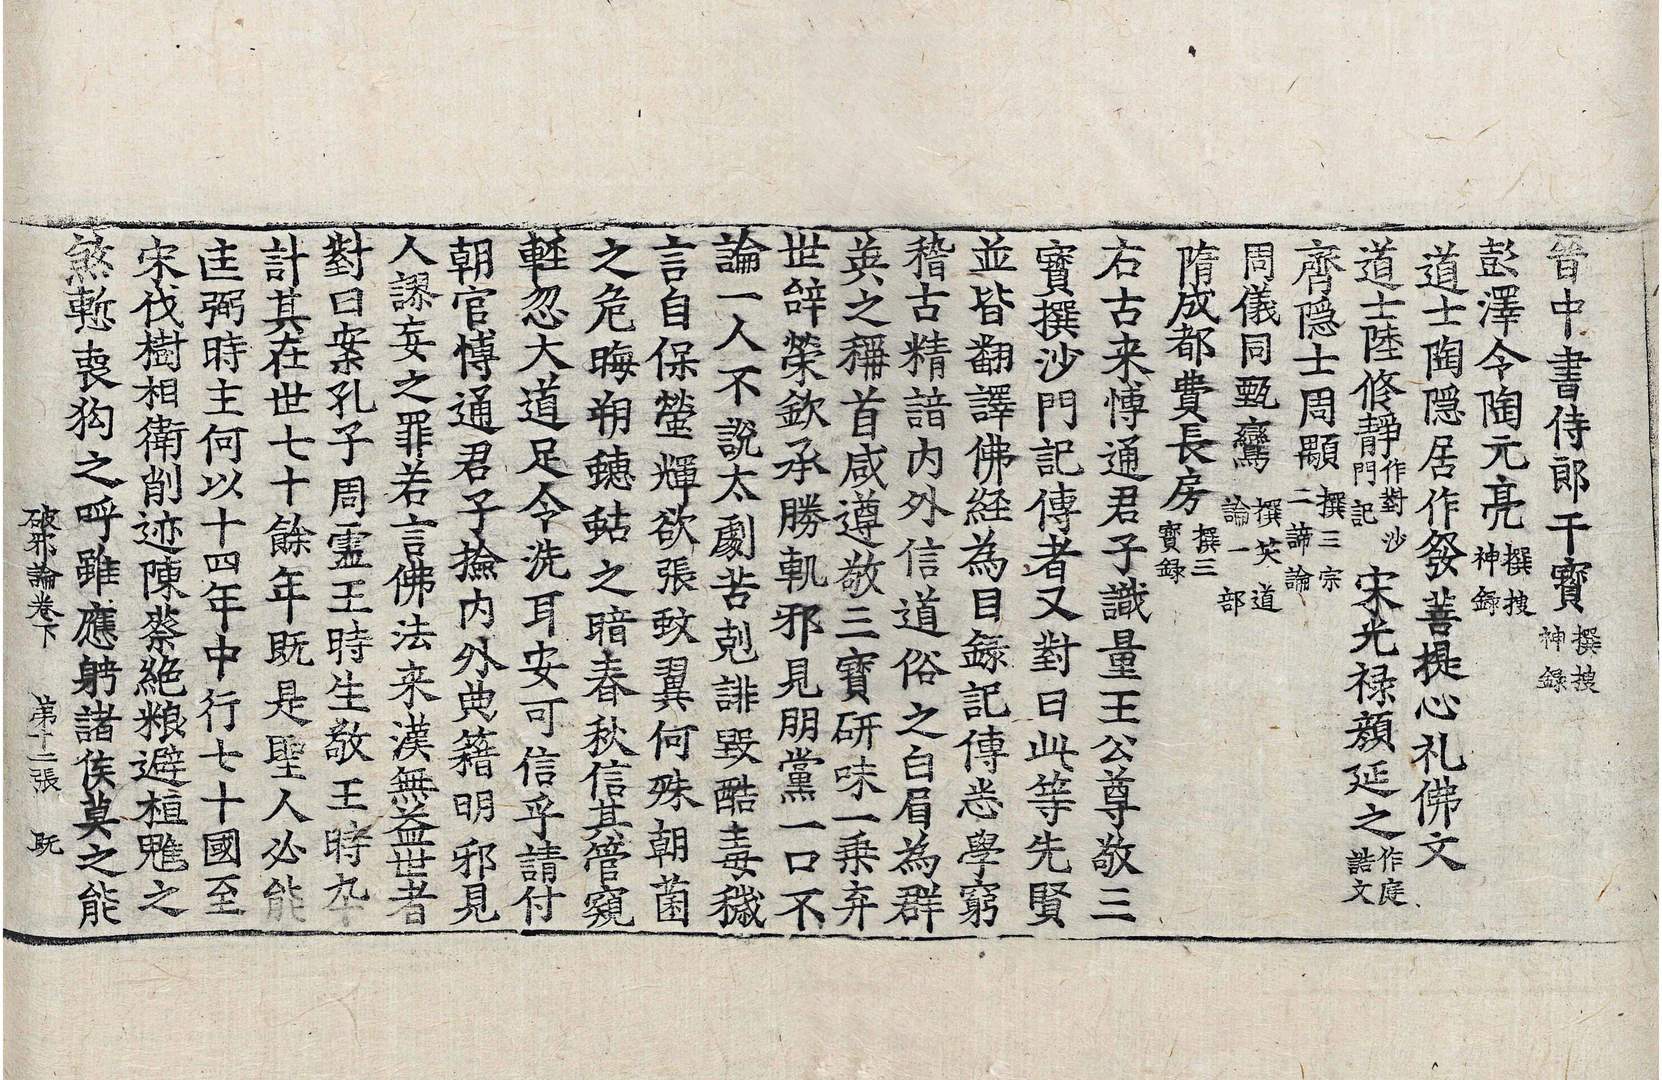 晉中書侍郎干寶撰搜神錄
彭澤令陶元亮撰搜神錄
道士陶隱居作發菩提心礼佛文
道士陸修靜作對沙門記 宋光祿顏延之作庭誥文
齊隱士周顒撰三宗二諦論
周儀同甄鸞撰笑道論一部
隋成都費長房撰三寶錄
右古来博通君子識量王公尊敬三
寶撰沙門記傳者又對曰此等先賢
並皆翻譯佛経為目錄記傳悉學窮
稽古精諳内外信道俗之白眉為群
英之稱首咸遵敬三寶研味一乗弃
世辝榮欽承勝軌邪見朋黨一口不
論一人不說太劇苦剋誹毀酷毒穢
言自保螢輝欲張蚊翼何殊朝菌
之危晦朔蟪蛄之暗春秋信其管窺
輊忽大道足令洗耳安可信乎請付
朝官博通君子撿内外典籍明邪見
人謬妄之罪若言佛法来漢無益世者
對曰案孔子周靈王時生敬王時卆
計其在世七十餘年既是聖人必能
匡弼時主何以十四年中行七十國至
宋伐樹相衛削迹陳蔡絶粮避桓魋之
煞慙喪狗之呼雖應聘諸侯莫之能
破邪論卷下 第十二張 既